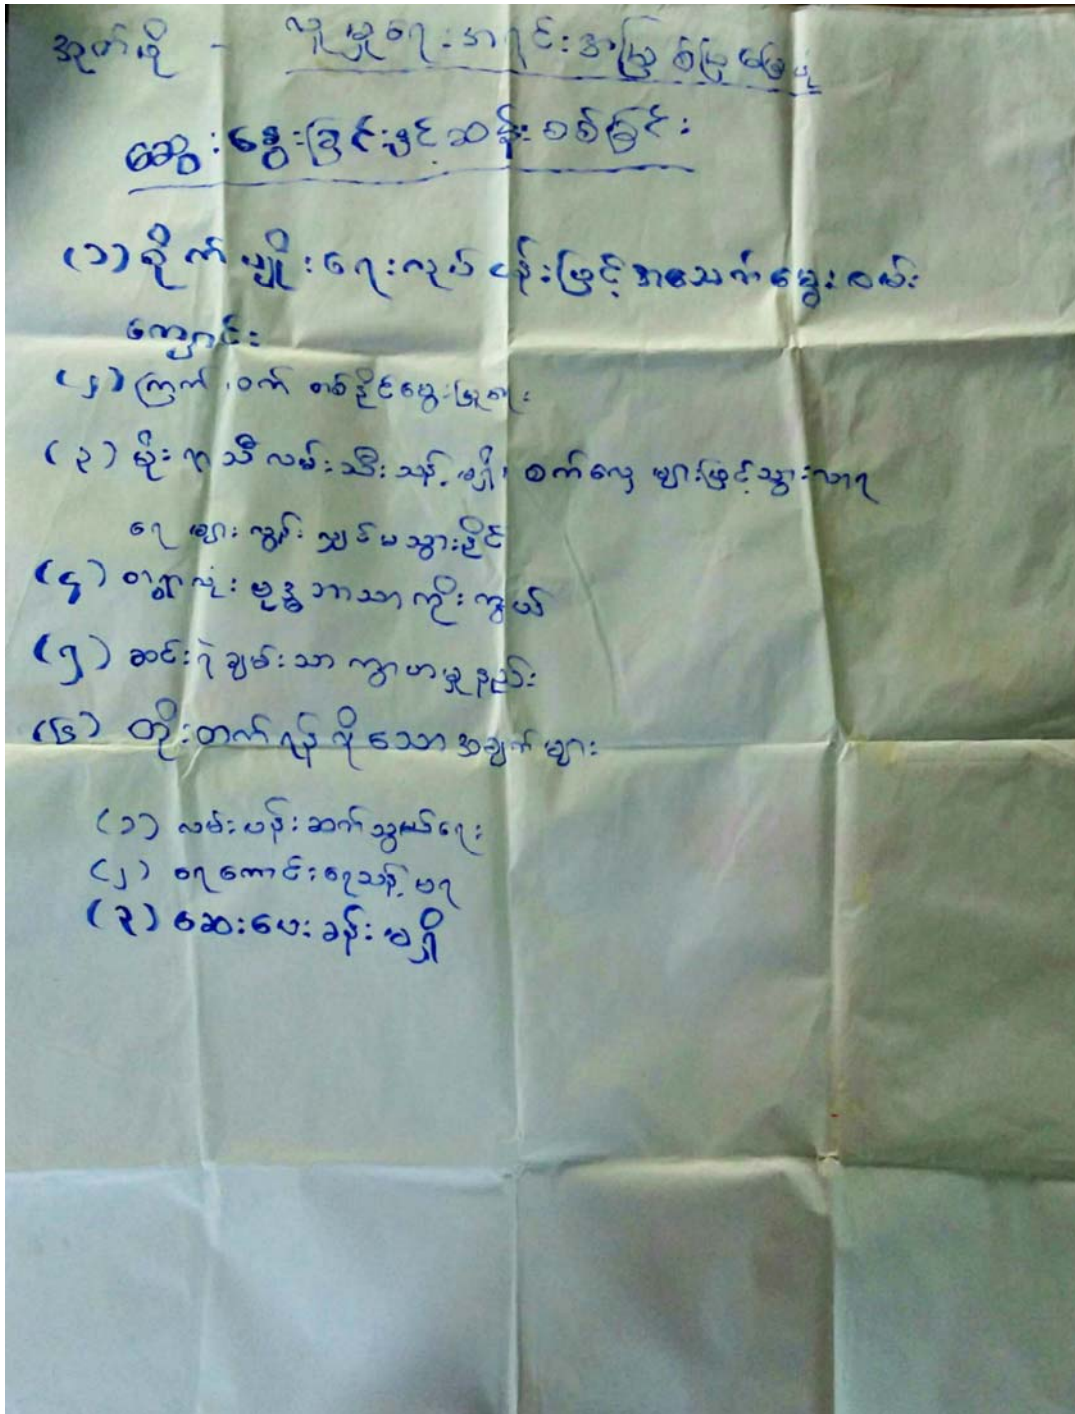 အုတ်ဖို - လူမှုရေးအရင်းအမြစ်ပြမြေပုံ
ဆွေးနွေးခြင်းနှင့်ဆန်းစစ်ခြင်း
(၁) စိုက်ပျိုးရေးလုပ်ငန်းဖြင့်အသက်မွေးဝမ်း
ကျောင်း
(၂) ကြက်၊ ဝက် တစ်နိုင်မွေးမြူရေး
(၃) မိုးရာသီလမ်းသီးသန့်မရှိ၊ စက်လှေများဖြင့်သွားလာရ
ရေများလွန်းလျှင်မသွားနိုင်
(၄) တစ်ရွာလုံးဗုဒ္ဓဘာသာကိုးကွယ်
(၅) ဆင်းရဲချမ်းသာ ကွာဟမှုနည်း
(၆) တိုးတက်ရန်လိုသောအချက်များ
(၁) လမ်းပန်းဆက်သွယ်ရေး
(၂) ရေကောင်းရေသန့်မရ
(၃) ဆေးပေးခန်းမရှိ